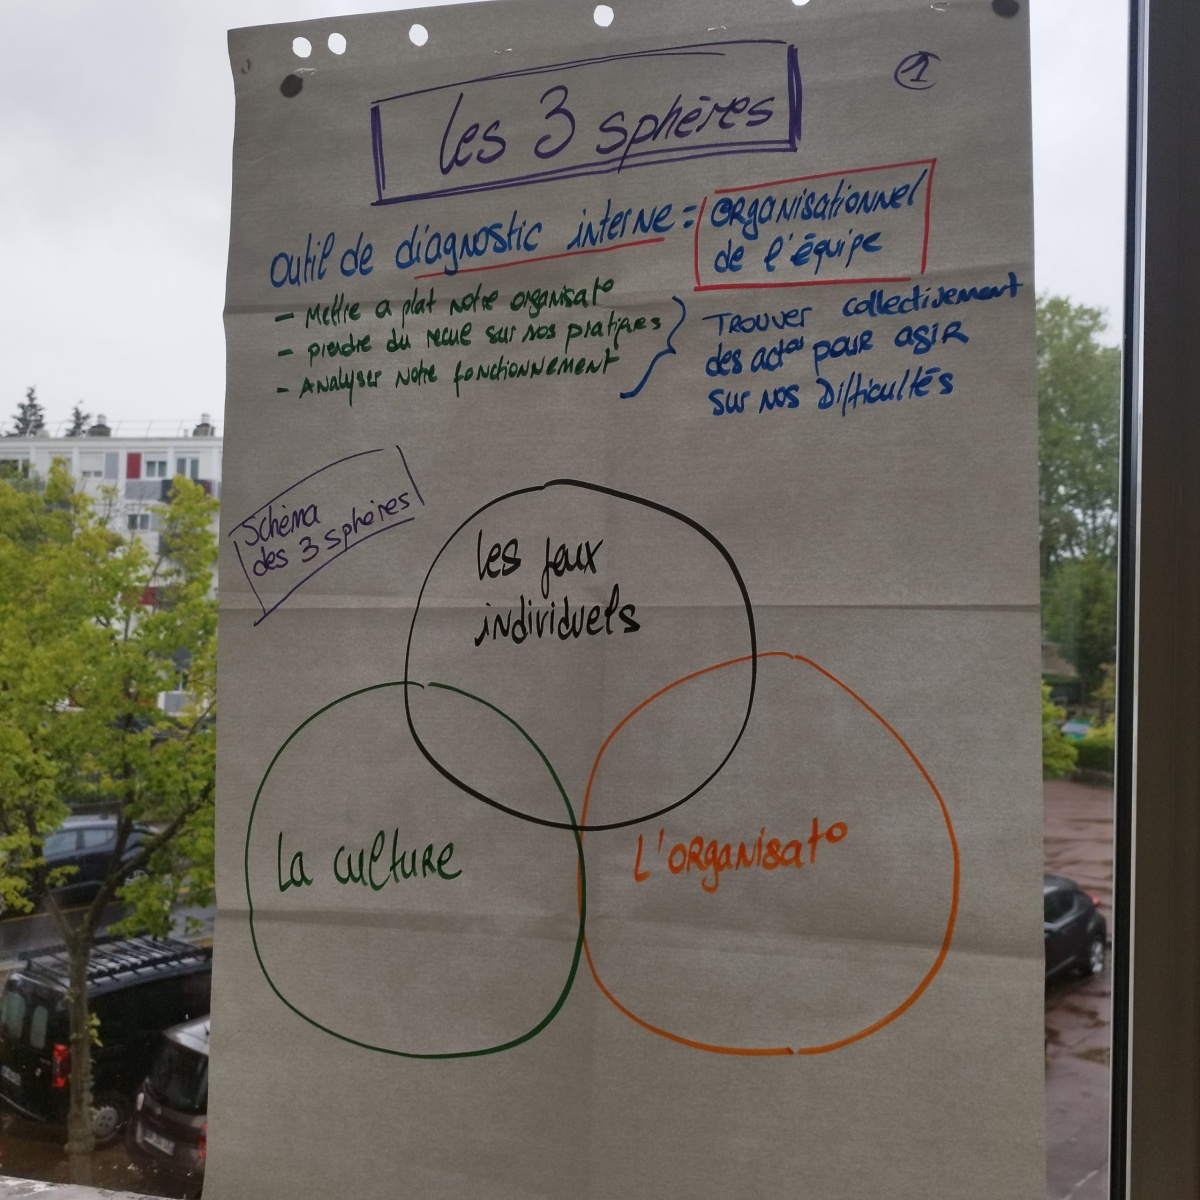 Les 3 sphères
1
outil de diagnostic interne = organisationnel
de l'équipe
- Mettre a plat notre organisato
- prendre du recue sur nos pratiques
- Analyser notre fonctionnement
Trouver collectivement
des actos pour agir
sur nos Difficultés
Schéma
des 3 sphères
les jeux
individuels
La culture
L'organisato